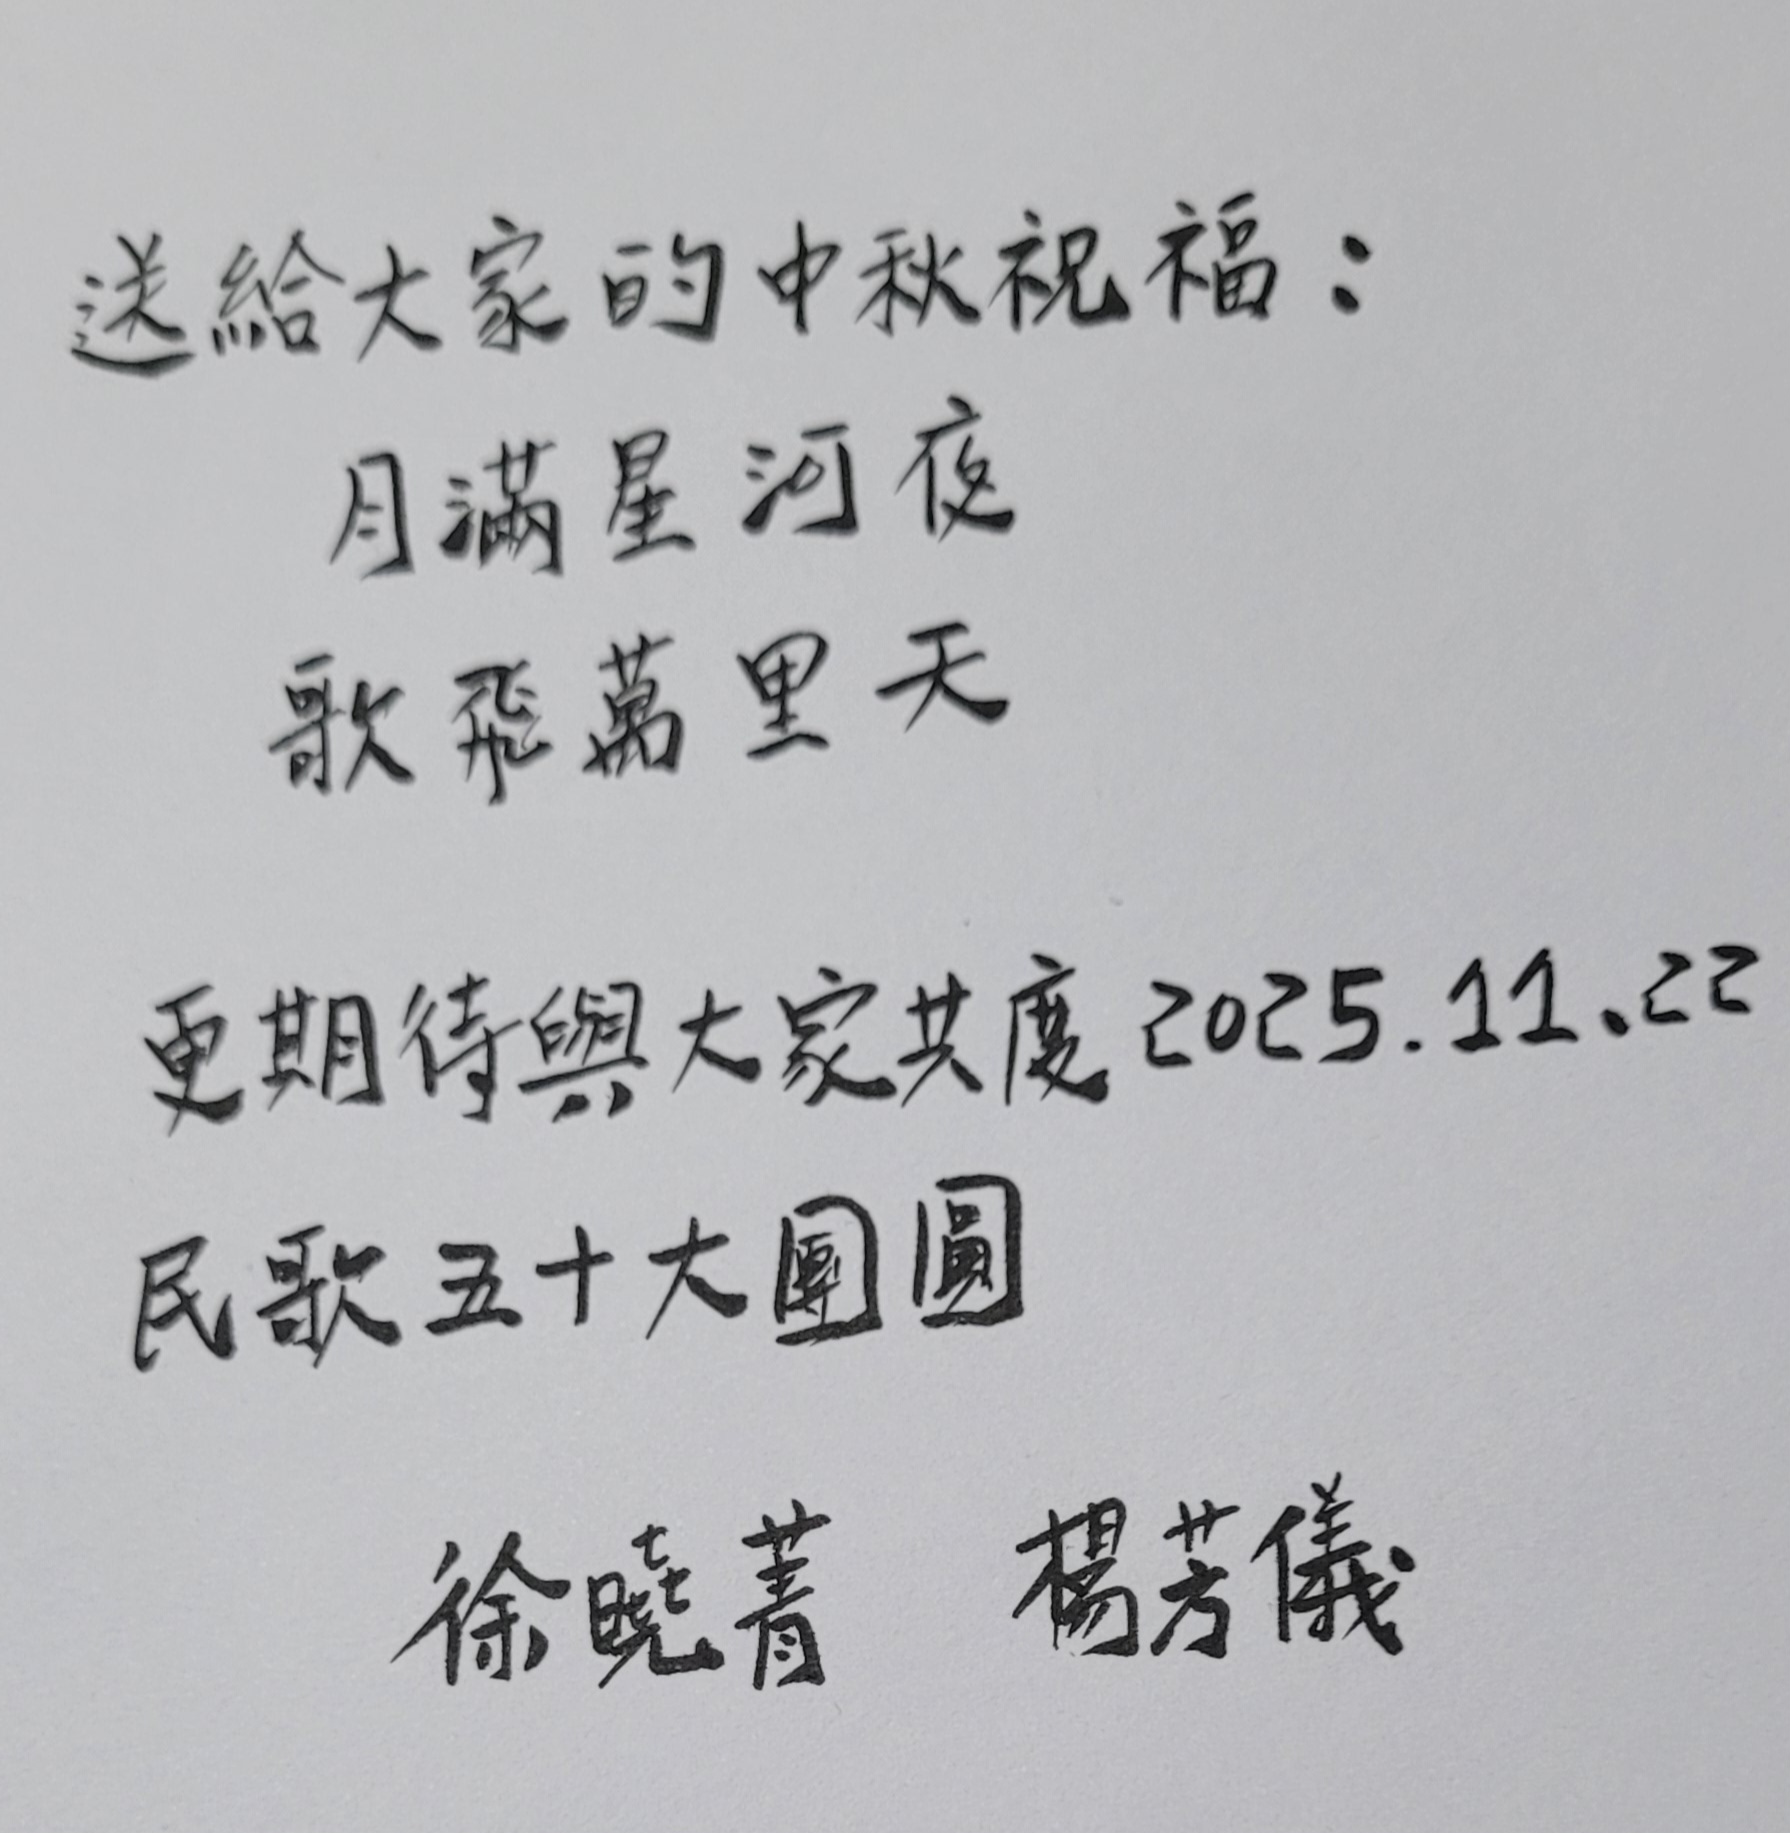 送給大家的中秋祝福：
月滿星河夜
歌飛萬里天
更期待與大家共度2025.11.22
民歌五十大團圓
徐曉菁 楊芳儀